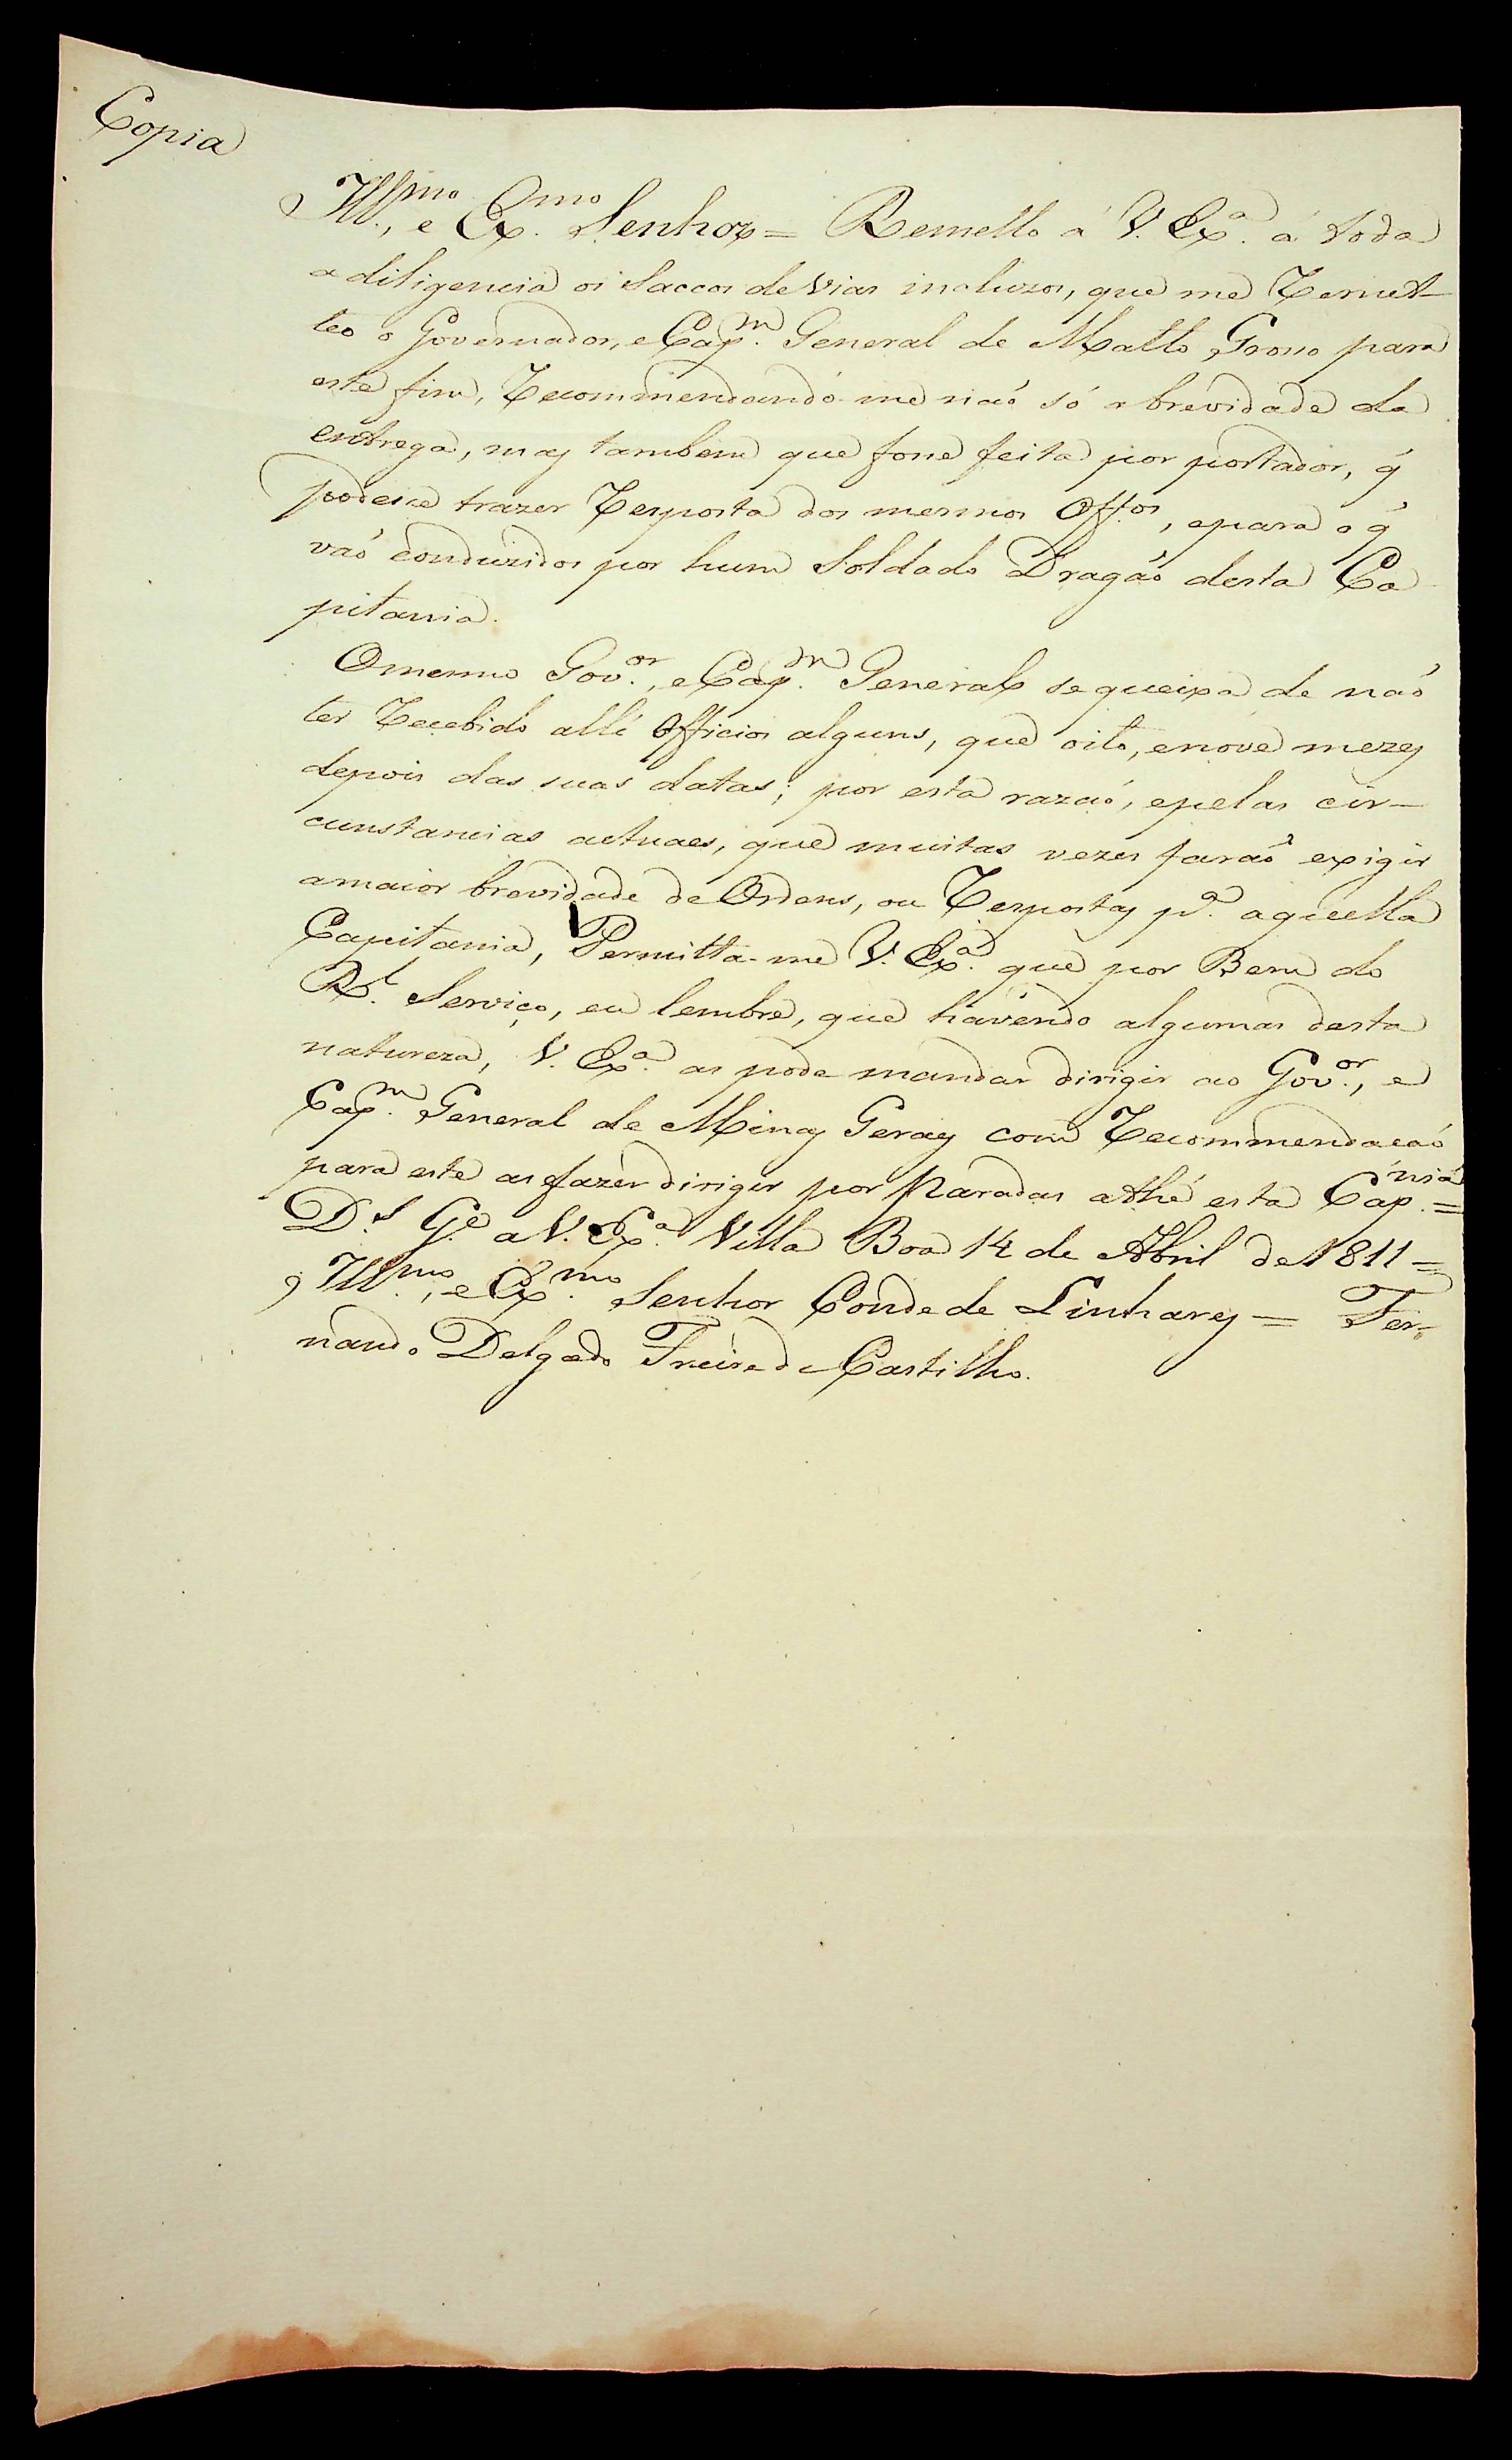 Copia
Ill.mo, e Ex.mo Senhor = Remetto á V. Ex.a á toda
a diligencia os Saccos de Vias incluzos, que me Remet-
teo o Governador, e Cap.m General de Matto Grosso para
este fim, Recommendando-me naõ só a brevidade da
entrega, mas tambem que fosse feita por portador, q̃
podesse trazer Resposta dos mesmos Off.os, e para o q̃
vaõ conduzidos por hum Soldado Dragaõ desta Ca
pitania.
O mesmo Gov.or, e Cap.m General se queixa de naõ
ter Recebido alli Officios alguns, que oito, e nove mezes
depois das suas datas; por esta razaõ, e pelas cir-
cunstancias actuaes, que muitas vezes faraõ exigir
a maior brevidade de Ordens, ou Respostas p.a aquella
Capitania, Permitta-me V. Ex.a que por Bem do
R.l Serviço, eu lembre, que havendo algumas desta
natureza, V. Ex.a as pode mandar dirigir ao Gov.or, e
Cap.m General de Minas Geraes com Recommendaçaõ
para este as fazer dirigir por Paradas athé esta Cap.nia =
D.s G.e a V. Ex.a Villa Boa 14 de Abril de 1811 =
Ill.mo, e Ex.mo Senhor Conde de Linhares = Fer-
nando Delgado Freire de Castilho.